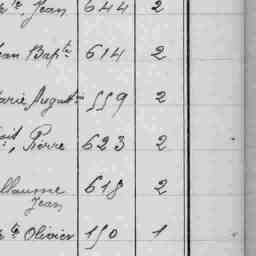 Jean 644 2
ean Bapte 614 2
arie August 559 2
oit, Pierre 623 2
illaume 618 2
Jean
Olivier 150 1